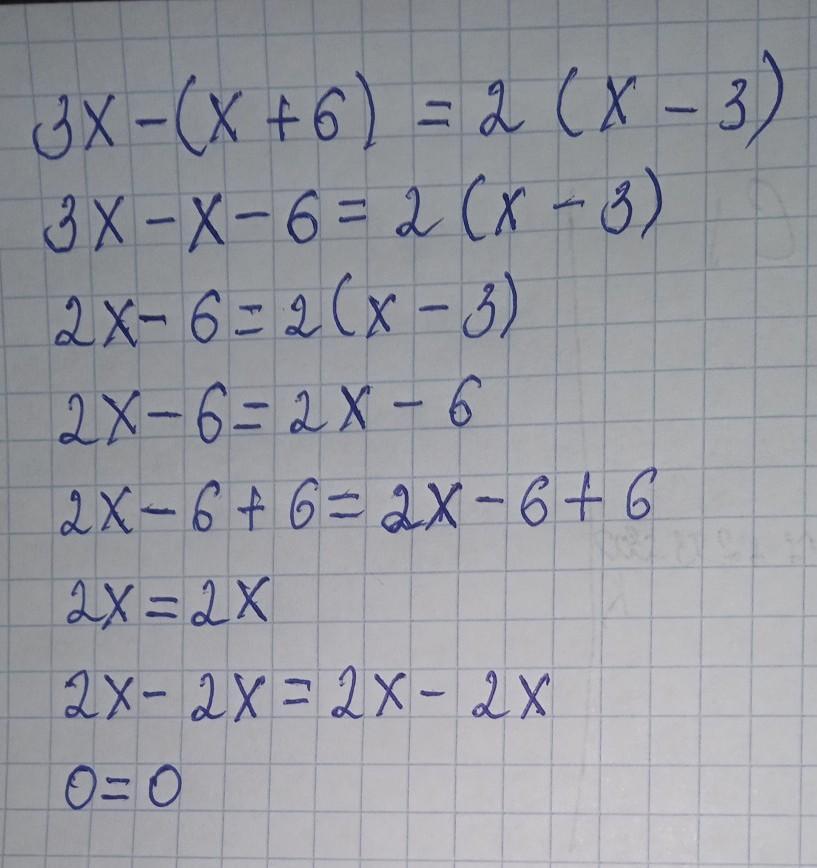 3x-(x+6) = 2 (x-3)
3x-x-6=2(x-3)
2x-6=2(x-3)
2x-6=2x-6
2x-6+6=2x-6+6
2x=2x
2x-2x=2x-2x
0=0